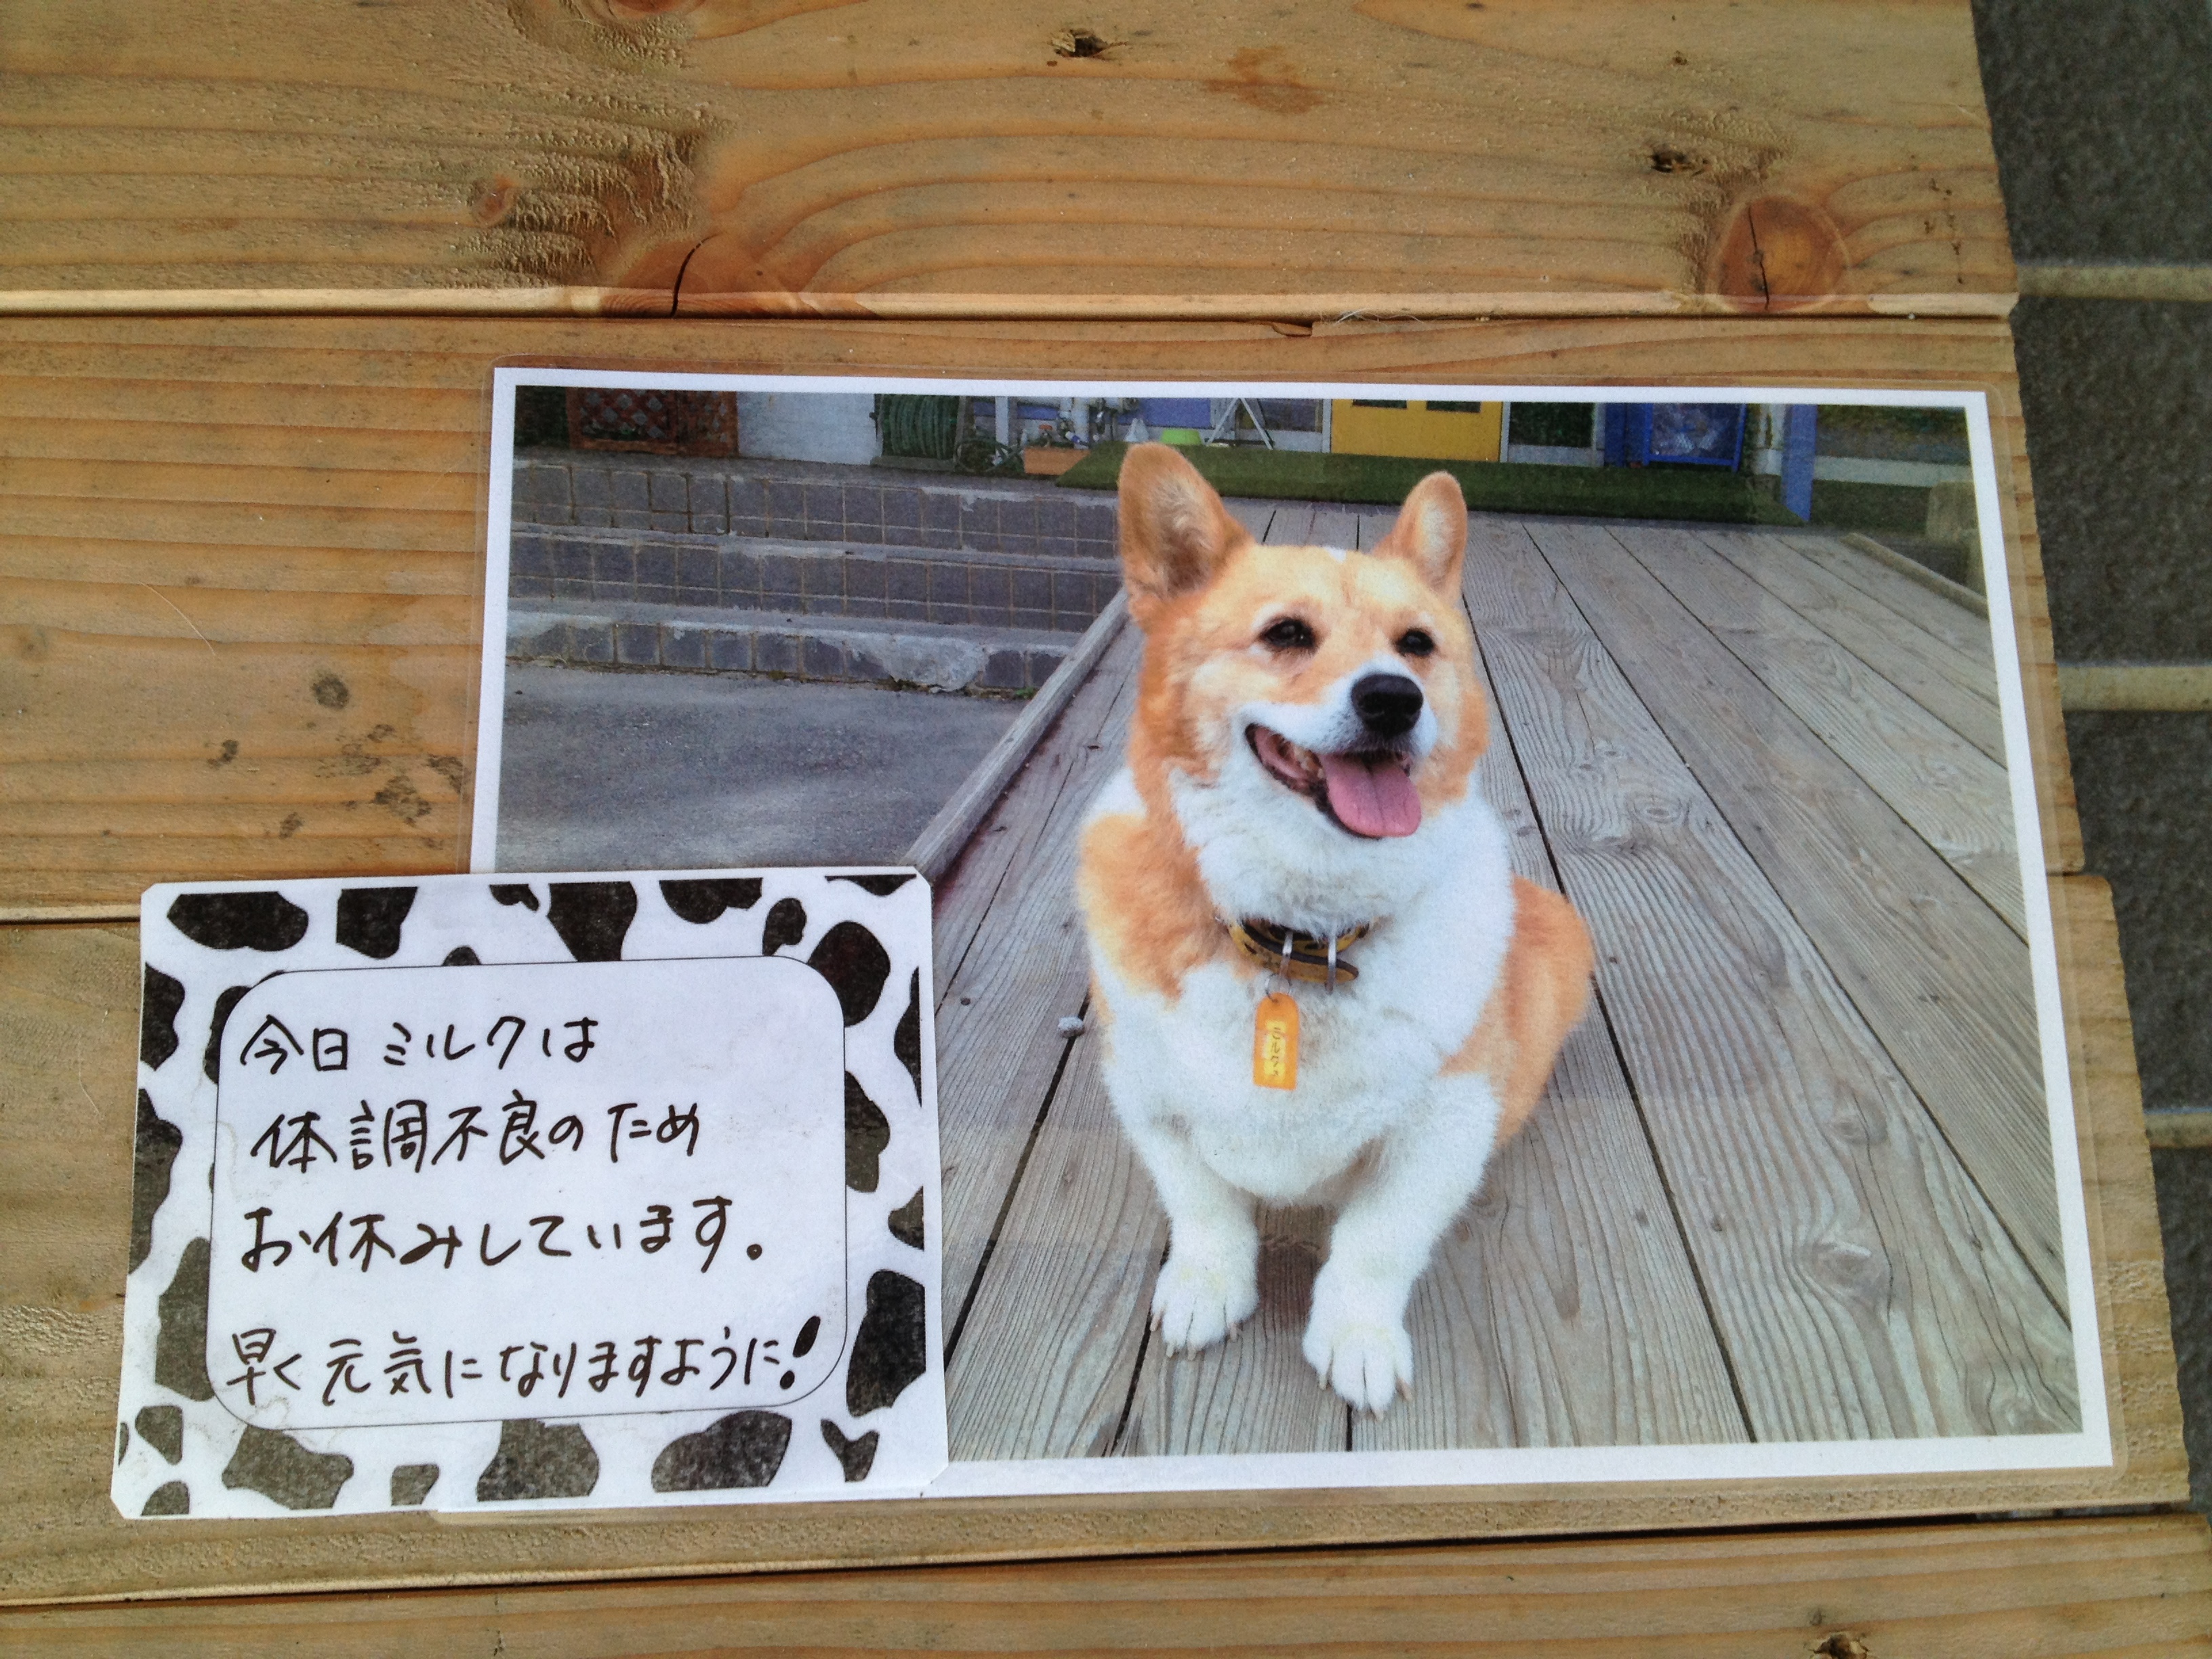 今日 ミルクは
体調不良の ため
お休みしています。
早く 元気になりますように!
ミルク